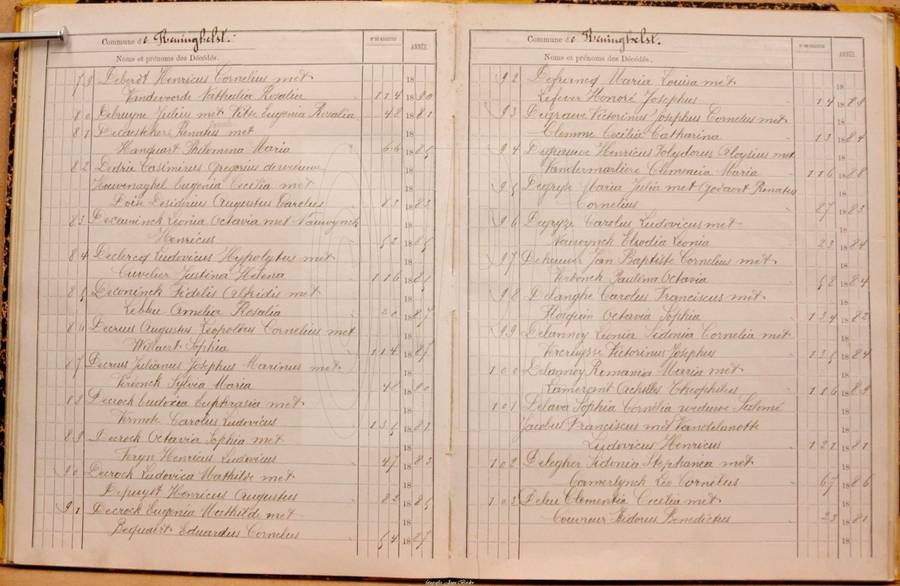 Commune de Reninghelst.
Noms et prénoms des Décédés.
ANNÉE
79 Deberdt Henricus Cornelius met
Vandevoorde Nathalia Rosalia 114 1880
80 Debruyne Julius met Eugenia Rosalia 48 1881
81 Renatus met
Hanquart Philomena Maria 66 1885
82 Dedrie Casimirus Gregorius
Houvenaghel Eugenia Cecilia met
Desiderius Augustus Carolus 83 1882
83 Decaninck Leonia Octavia met Nauwynck
Henricus 52 1885
84 Declercq Ludovicus Hypolytus met
Cuvelier Justina Helena 116 1881
85 Deconinck Fidelis met
Lebbe Amelia Rosalia 20 1887
86 Augustus Leopoldus Cornelius met
Sophia 114 1887
87 Julianus Josephus Marinus met
Sylvia Maria 48 1880
88 Decrock Eudoxia Euphrasia met
Carolus Ludovicus 135 1881
89 Decrock Octavia Sophia met
Feryn Henricus Ludovicus 47 1883
90 Decrock Ludovica Mathilde met
Depuydt Henricus Augustus 82 1885
91 Decrock Eugenia Mathilde met
Bequaert Eduardus Cornelius 54 1887
Commune de Reninghelst.
Noms et prénoms des Décédés.
ANNÉE
92 Maria Louisa met
Lefever Honoré Josephus 14 1888
93 Degraeve Victorinus Josephus Cornelius met
Clemme Cecilia Catharina 13 1884
94 Henricus Polydorus Aloysius met
Vandermarliere Clemencia Maria 116 1888
95 Degryse Maria Julia met Godaert Renatus
Cornelius 27 1883
96 Degryse Carolus Ludovicus met
Nauwynck Elodia Leonia 23 1884
97 Jan Baptiste Cornelius met
Paulina Octavia 58 1884
98 Delanghe Carolus Franciscus met
Octavia Sophia 124 1882
99 Delannoy Leonia Sidonia Cornelia met
Victorinus Josephus 135 1884
100 Delannoy Romania Maria met
Lamerant Achilles Theophilus 116 1889
101 Delava Sophia Cornelia weduwe Salomé
Jacobus Franciscus met Vandelanotte
Ludovicus Henricus 121 1881
102 Delegher Sidonia Stephania met
Camerlynck Leo Cornelius 67 1886
103 Deleu Clementia Cecilia met
Couvreur Isidorus Benedictus 23 1881